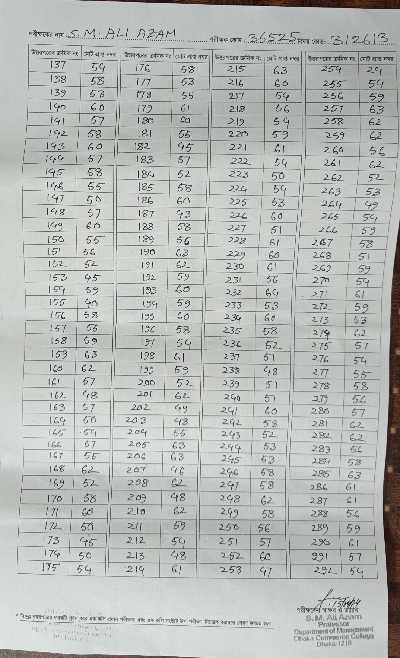 পরীক্ষকের নাম: S. M. ALI AZAM পরীক্ষক কোড: 36525 বিষয় কোড: 312613
উত্তরপত্রের ক্রমিক নং মোট প্রাপ্ত নম্বর উত্তরপত্রের ক্রমিক নং মোট প্রাপ্ত নম্বর উত্তরপত্রের ক্রমিক নং মোট প্রাপ্ত নম্বর উত্তরপত্রের ক্রমিক নং মোট প্রাপ্ত নম্বর
137 54 176 58 215 63 254
138 58 177 53 216 60 255 54
139 58 178 55 217 54 256 59
140 60 179 61 218 56 257 63
141 57 180 60 219 54 258 62
142 58 181 56 220 59 259 62
143 60 182 45 221 61 260 56
144 57 183 57 222 54 261 62
145 58 184 52 223 50 262 52
146 55 185 58 224 54 263 53
147 50 186 60 225 53 264 49
148 57 187 43 226 60 265 54
149 60 188 58 227 51 266 59
150 55 189 56 228 61 267 58
151 56 190 63 229 60 268 51
152 52 191 62 230 61 269 59
153 45 192 59 231 56 270 54
154 59 193 60 232 64 271 61
155 40 194 59 233 53 272 59
156 58 195 60 234 60 273 53
157 56 196 58 235 58 274 62
158 59 197 54 236 52 275 57
159 63 198 61 237 51 276 54
160 62 199 59 238 48 277 55
161 57 200 52 239 51 278 58
162 48 201 62 240 51 279 56
163 57 202 49 241 60 280 57
164 50 203 48 242 58 281 62
165 54 204 55 243 52 282 62
166 57 205 63 244 53 283 56
167 55 206 63 245 53 284 58
168 62 207 46 246 58 285 63
169 52 208 62 247 58 286 61
170 58 209 48 248 62 287 61
171 60 210 62 249 58 288 56
172 50 211 59 250 56 289 59
73 45 212 54 251 57 290 61
174 50 213 48 252 60 291 57
175 54 214 61 253 47 292 54
পরীক্ষকের স্বাক্ষর ও তারিখ
S.M. Ali Azam
Professor
Department of Management
Dhaka Commerce College
Dhaka-1216